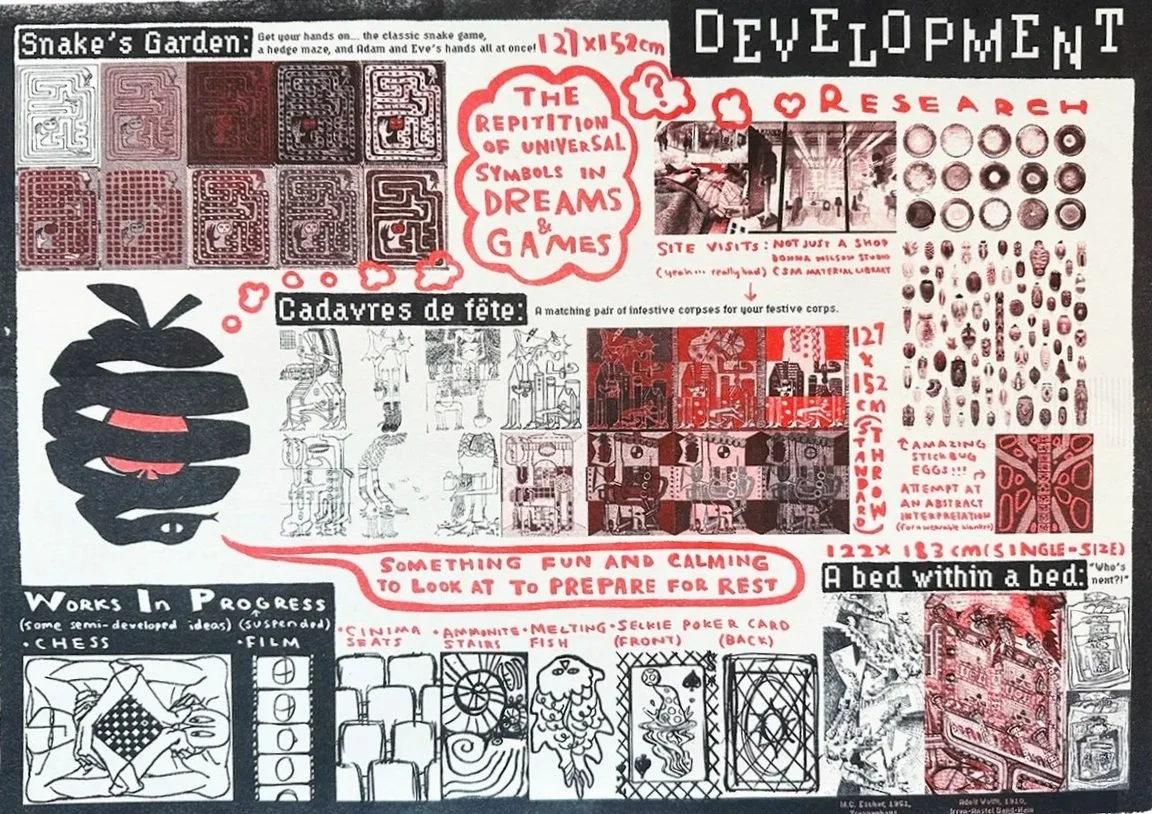 DEVELOPMENT
Snake's Garden:
Get your hands on... the classic snake game,
a hedge maze, and Adam and Eve's hands all at once!
127x152cm
THE
REPITITION
OF UNIVERSAL
SYMBOLS IN
DREAMS
&
GAMES
?
RESEARCH
SITE VISITS: NOT JUST A SHOP
DONNA WILSON STUDIO
(yeah... really bad) CSM MATERIAL LIBRARY
Cadavres de fête:
A matching pair of infestive corpses for your festive corps.
127
x
152
cm
(STANDARD
THROW)
↑ AMAZING
STICKBUG
EGGS!!!
ATTEMPT AT
AN ABSTRACT
INTERPRETATION
(for a wearable blanket)
SOMETHING FUN AND CALMING
TO LOOK AT TO PREPARE FOR REST
122x 183cm (SINGLE-SIZE)
A bed within a bed:
"Who's
next?!"
WORKS IN PROGRESS
(some semi-developed ideas) (suspended)
• CHESS
• FILM
• CINIMA
SEATS
• AMMONITE
STAIRS
• MELTING
FISH
• SELKIE POKER CARD
(FRONT) (BACK)
M.C. Escher, 1951,
Adolf Wölfli, 1910,